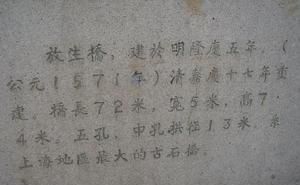 放生橋，建於明隆慶五年，(
公元1571年)清嘉慶十七年重
建。橋長72米，寬5米，高7.
4米。五孔，中孔拱徑13米 系
上海地區最大的古石橋。